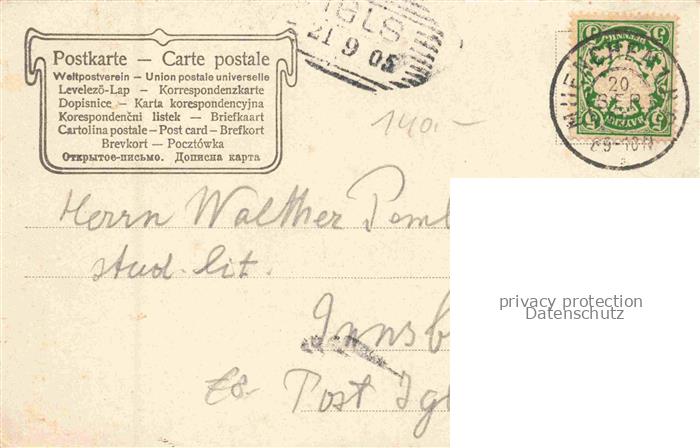 IGLS
21 9 05
Postkarte — Carte postale
Weltpostverein – Union postale universelle
Levelezö-Lap – Korrespondenzkarte
Dopisnice – Karta korespondencyjna
Korespondenční listek – Briefkaart
Cartolina postale – Post card – Brefkort
Brevkort – Pocztówka
Открытое-письмо. Дописна карта
5 PFENNIG 5
BAYERN
MUENCHEN
20
SEP
8 9-10 N
140.–
Herrn Walther
stud. lit.
Innsb
Post Igl
privacy protection
Datenschutz